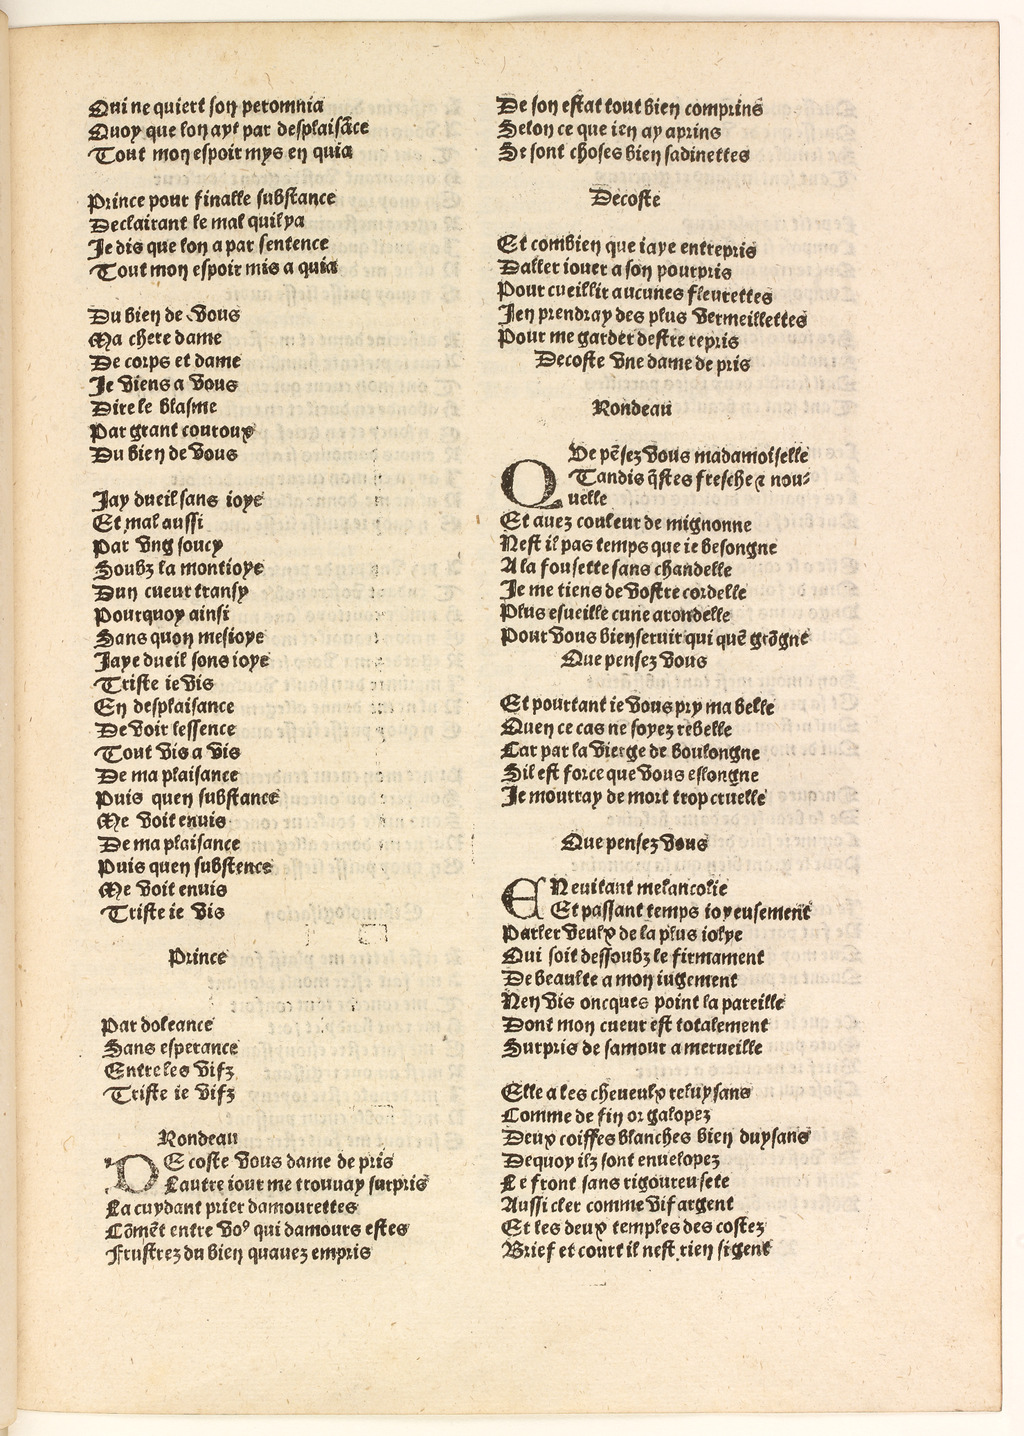 Qui ne quiert son peromnia
Quoy que lon ayt par desplaisãce
Tout mon espoir mys en quia
Prince pour finalle substance
Declairant le mal quil ya
Je dis que lon a par sentence
Tout mon espoir mis a quia
Du bien de vous
Ma chere dame
De corps et dame
Je viens a vous
Dire le blasme
Par grant couroux
Du bien de vous
Jay dueil sans ioye
Et mal aussi
Par ung soucy
Soubz la montioye
Dun cueur transy
Pourquoy ainsi
Sans quon mesioye
Jaye dueil sons ioye
Triste ie vis
En desplaisance
De voir lessence
Tout vis a vis
De ma plaisance
Puis quen substance
Me voit enuis
De ma plaisance
Puis quen substence
Me voit enuis
Triste ie vis
Prince
Par doleance
Sans esperance
Entre les vifz
Triste ie vifz
Rondeau
DE coste vous dame de pris
Lautre iour me trouuay surpris
La cuydant prier damourettes
Cõmẽt entre voꝰ qui damours estes
Frustrez du bien quauez empris
De son estat tout bien comprins
Selon ce que ien ay aprins
Se sont choses bien sadinettes
Decoste
Et combien que iaye entrepris
Daller iouer a son pourpris
Pour cueillir aucunes fleurettes
Jen prendray des plus vermeillettes
Pour me garder destre repris
Decoste vne dame de pris
Rondeau
QVe pẽsez vous madamoiselle
Tandis q̃stes fresche ⁊ nou⸗
uelle
Et auez couleur de mignonne
Nest il pas temps que ie besongne
A la fousette sans chandelle
Je me tiens de vostre cordelle
Plus esueille cune arondelle
Pour vous bien seruir qui quẽ grõgne
Que pensez vous
Et pourtant ie vous pry ma belle
Quen ce cas ne soyez rebelle
Car par la vierge de boulongne
Sil est force que vous eslongne
Je mourray de mort trop cruelle
Que pensez vous
EN euitant melancolie
Et passant temps ioyeusement
Parler veulx de la plus iolye
Qui soit dessoubz le firmament
De beaulte a mon iugement
Nen vis oncques point la pareille
Dont mon cueur est totalement
Surpris de samour a merueille
Elle a les cheueulx reluysans
Comme de fin or galopez
Deux coiffes blanches bien duysans
Dequoy ilz sont enuelopez
Le front sans rigoureusete
Aussi cler comme vif argent
Et les deux temples des costez
Brief et court il nest rien si gent